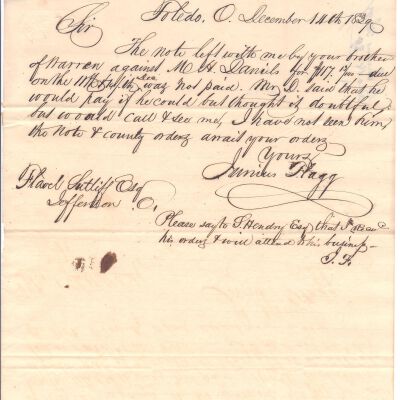 Toledo, O. December 14th 1839
Sir
The note left with me by your brother
of Warren against M. H. Daniels for $117. due
on the 11th was not paid. Mr D. said that he
would pay if he could but thought it doubtful,
but would call & see me, I have not seen him,
the Note & county orders await your orders
Yours
Junius Flagg
Flavel Sutliff Esq
Jefferson O.
Please say to T. Hendry Esq that I
his orders & will attend to his business
J. F.